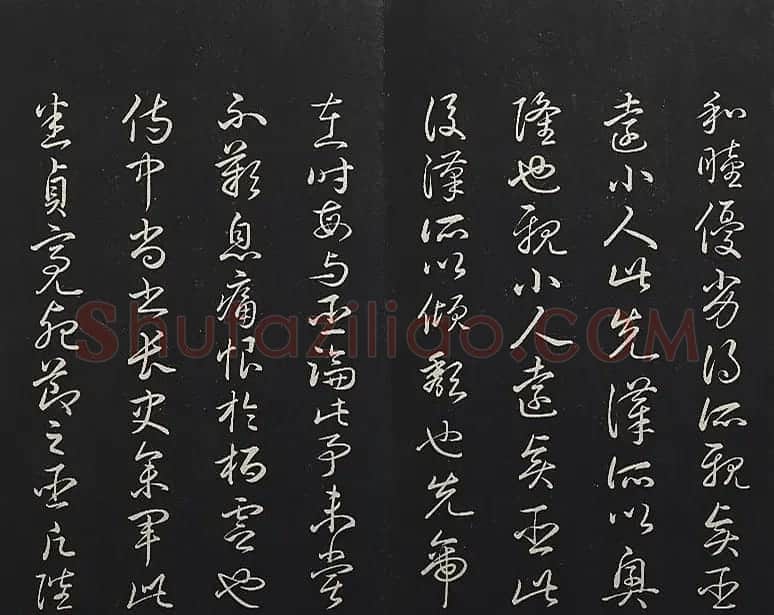 和睦優劣得所親賢臣
遠小人此先漢所以興
隆也親小人遠賢臣此
後漢所以傾頹也先帝
在時每与臣論此事未嘗
不歎息痛恨於桓靈也
侍中尚書長史參軍此
悉貞亮死節之臣願陛
Shufaziliao.COM